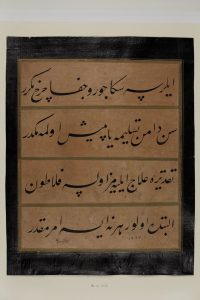 ایلرسه سکا جور و جفا چرخ مکرر
سن دامن تسلیمه یاپیش اولمه مکدر
تقدیره علاج ایلیه‌مز اولسه فلاطون
البته اولور هر نه ایسه امر مقدر